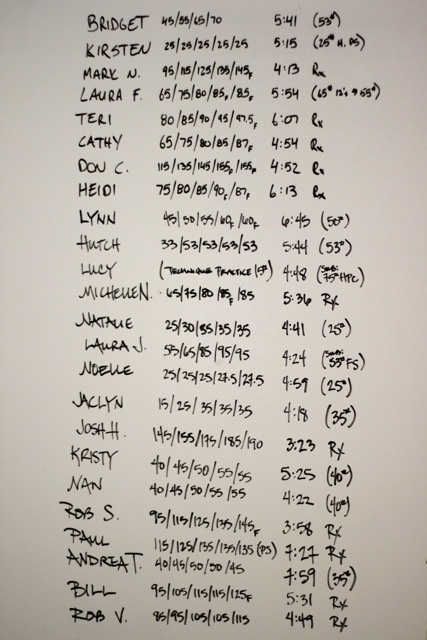 BRIDGET 45/55/65/70 5:41 (53#)
KIRSTEN 25/25/25/25/25 5:15 (25# H. PS)
MARK N. 95/115/125/135/145F 4:13 Rx
LAURA F. 65/75/80/85F/85F 5:54 (65# 12's 9 55#)
TERI 80/85/90/95/97.5F 6:07 Rx
CATHY 65/75/80/85/87F 4:54 Rx
DON C. 115/135/145/155F/155F 4:52 Rx
HEIDI 75/80/85/90F/87F 6:13 Rx
LYNN 45/50/55/60F/60F 6:45 (50#)
HUTCH 33/53/53/53/53 5:44 (53#)
LUCY (TECHNIQUE PRACTICE/15#) 4:48 (75# HPC)
MICHELLE N. 65/75/80/85F/85 5:36 Rx
NATALIE 25/30/35/35/35 4:41 (25#)
LAURA J. 55/65/85/95/95 4:24 (55# FS)
NOELLE 25/25/25/27.5/27.5 4:59 (25#)
JACLYN 15/25/35/35/35 4:18 (35#)
JOSH H. 145/155/175/185/190 3:23 Rx
KRISTY 40/45/50/55/55 5:25 (40#)
NAN 40/45/50/55/55 4:22 (40#)
ROB S. 95/115/125/135/145F 3:58 Rx
PAUL 115/125/135/135/135 (PS) 7:27 Rx
ANDREA T. 40/45/50/50/45 7:59 (35#)
BILL 95/105/115/115/125F 5:31 Rx
ROB V. 85/95/105/105/115 4:49 Rx